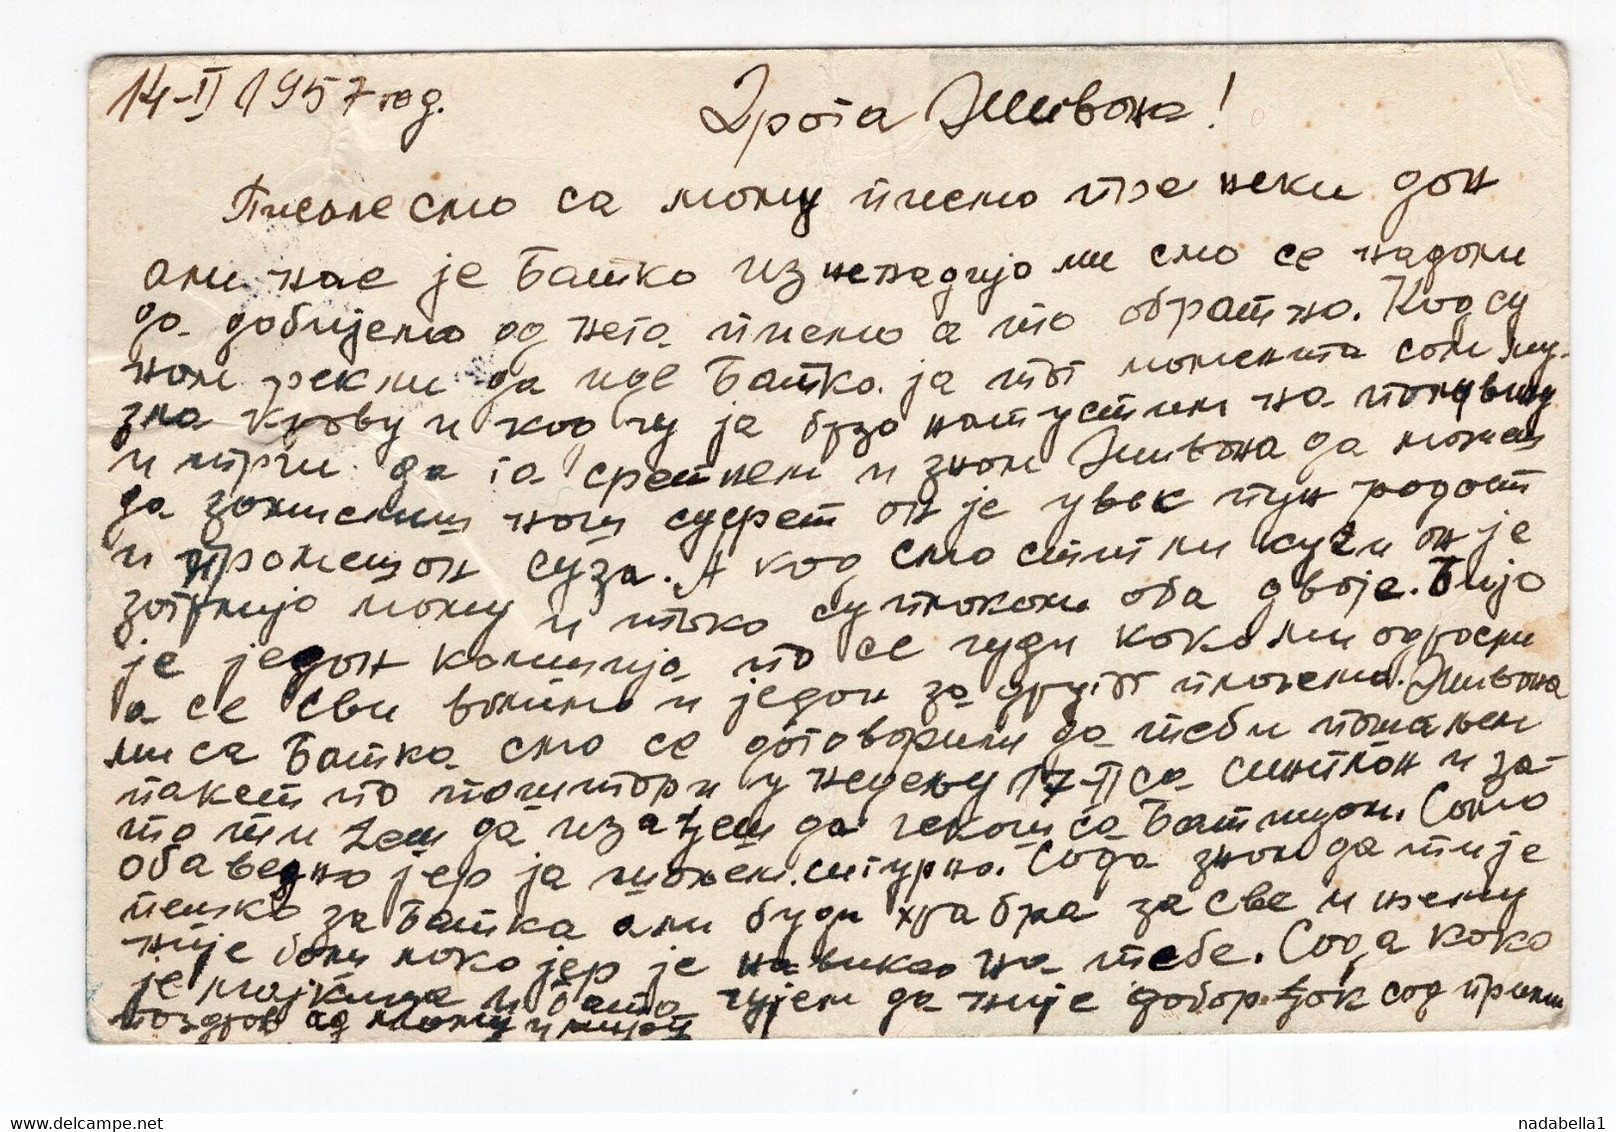 14-II 1957 год.
Драга Живана!
Писале смо са мому писмо пре неки дан
али нас је Батко изненадијо ми смо се надали
да добијемо од њега писмо а то обратно. Кад су
нам рекли да иде Батко ја тог момента сам му-
зла краву и кад чу ја брзо напустим на половину
и трчи да га сретнем и знам Живана да можеш
да замислиш наш сусрет он је увек пун радост
и промешан суза. А кад смо стигли кући он је
загрлијо мому и тако су плакали оба двоје. Бијо
је један комшија, па се чуди како ми одрасли
а се сви волимо и један за другог плачемо. Живана
ми са Батка смо се договорили да теби пошаљем
пакет по поштари у недељу 17-II са синплон и за-
то ти ћеш да изађеш да чекаш са Батицом. Само
обаведно јер ја шаљем сигурно. Сада знам да ти је
тешко за Батка али буди храбра за све и њему
није било лако јер је навикао на тебе. Сада како
је мајкица и бата чујем да није добар. ђок сад прими
поздрав од мому и
nadabella1